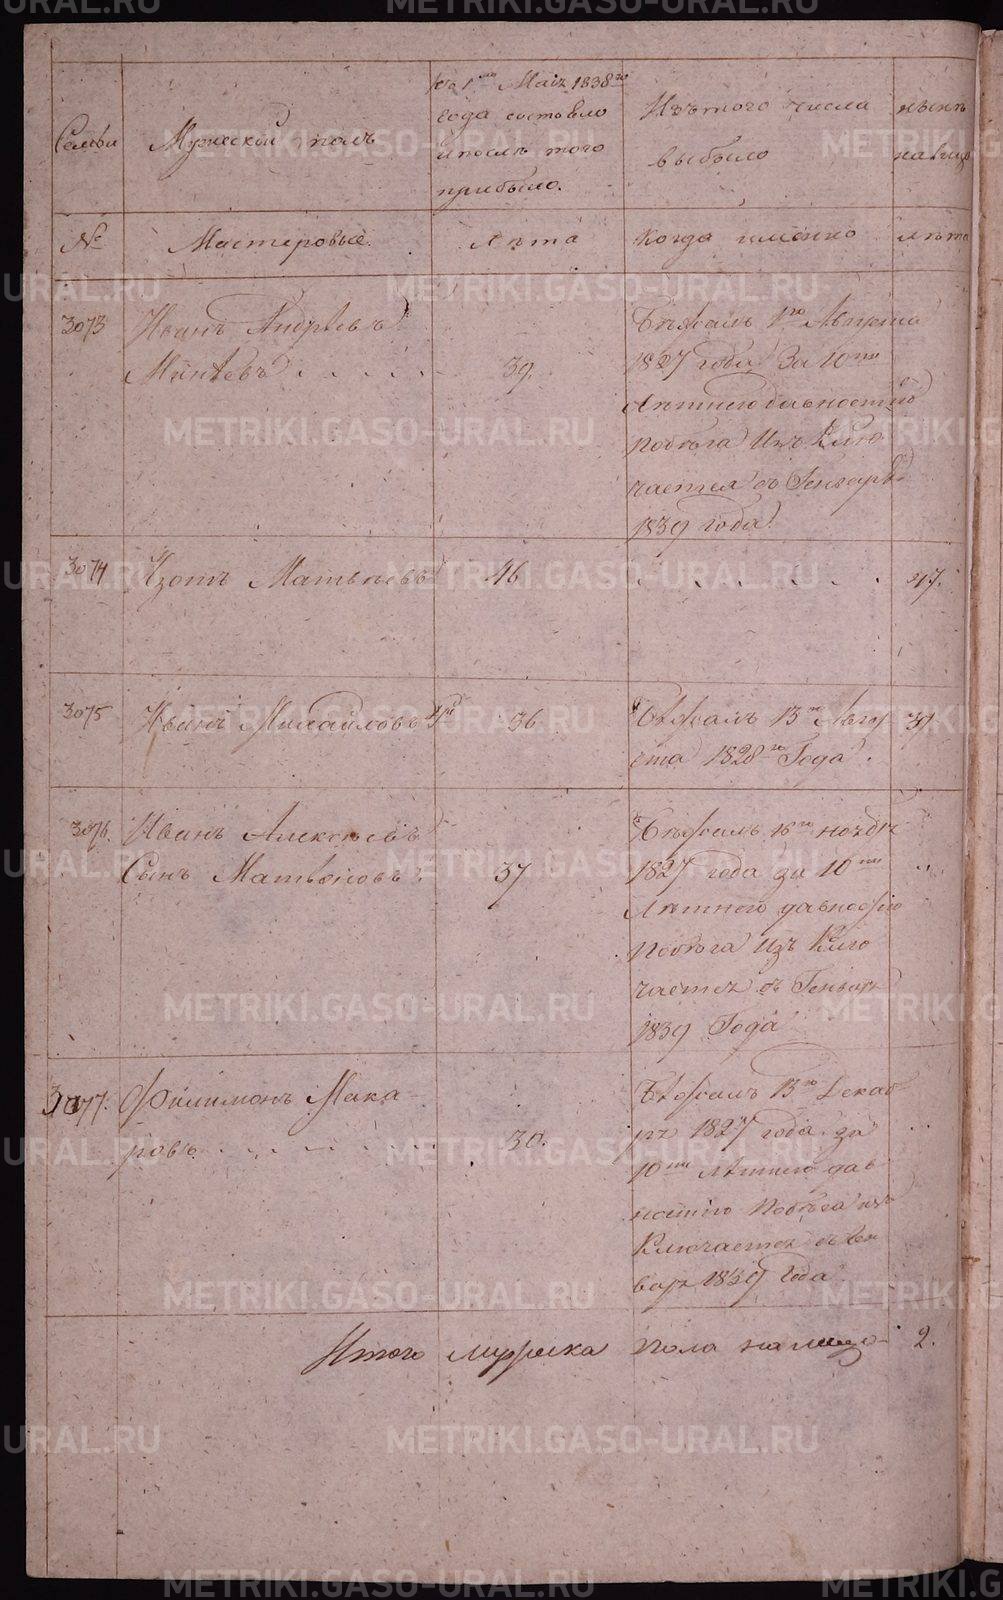 Семьи
№
Мужеской полъ
Мастеровые.
къ 1му Маія 1838го
года состояло
и послѣ того
прибыло.
Лѣта
Изъ того числа
выбыло
Когда именно
нынѣ
на лицо
лѣта
3073
Иванъ Андрѣевъ
39.
Бѣжалъ 1го Августа
1827 года За 10ти
Лѣтнею давностію
побѣга Изъ Клю
чается съ Генваря
1839 года.
3074
Изотъ Матвѣевъ
46
47.
3075
Иванъ Михайловъ
36
Бѣжалъ 13го Авгу
ста 1828го Года.
39
3076.
Иванъ Алексѣевъ
Сынъ Матвѣевъ
37
Бѣжалъ 16го ноября
1827 года за 10ти
Лѣтнею давностію
Побѣга Изъ Клю
чается съ Генваря
1839 Года
3077.
Филимонъ Мака
ровъ
30.
Бѣжалъ 13го Декаб
ря 1827 года за
10ти лѣтнею дав
ностію Побѣга из
Ключается съ Ген
варя 1839 Года
Итого мужеска пола на лицо 2.
METRIKI.GASO-URAL.RU